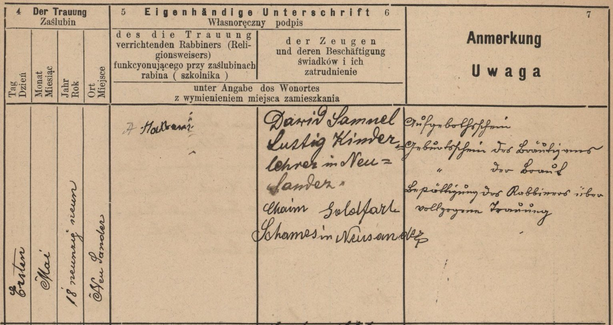 4 Der Trauung
Zaślubin
5 Eigenhändige Unterschrift 6
Własnoręczny podpis
7
des die Trauung
verrichtenden Rabbiners (Reli-
gionsweisers)
funkcyonującego przy zaślubinach
rabina ( szkolnika )
der Zeugen
und deren Beschäftigung
świadków i ich
zatrudnienie
Anmerkung
Uwaga
Tag
Dzień
Monat
Miesiąc
Jahr
Rok
Ort
Miejsce
unter Angabe des Wonortes
z wymienieniem miejsca zamieszkania
Dawid Samuel
Lustig Kinder-
lehrer in Neu=
Sandez
Chaim Goldfarb
Schames in Neusandez
Aufgebothsschein
Geburtsschein des Bräutigams
" der Braut
Bestättigung des Rabbiners über
vollzogene Trauung
Ersten
Mai
18 neunzig neun
Neu Sandez